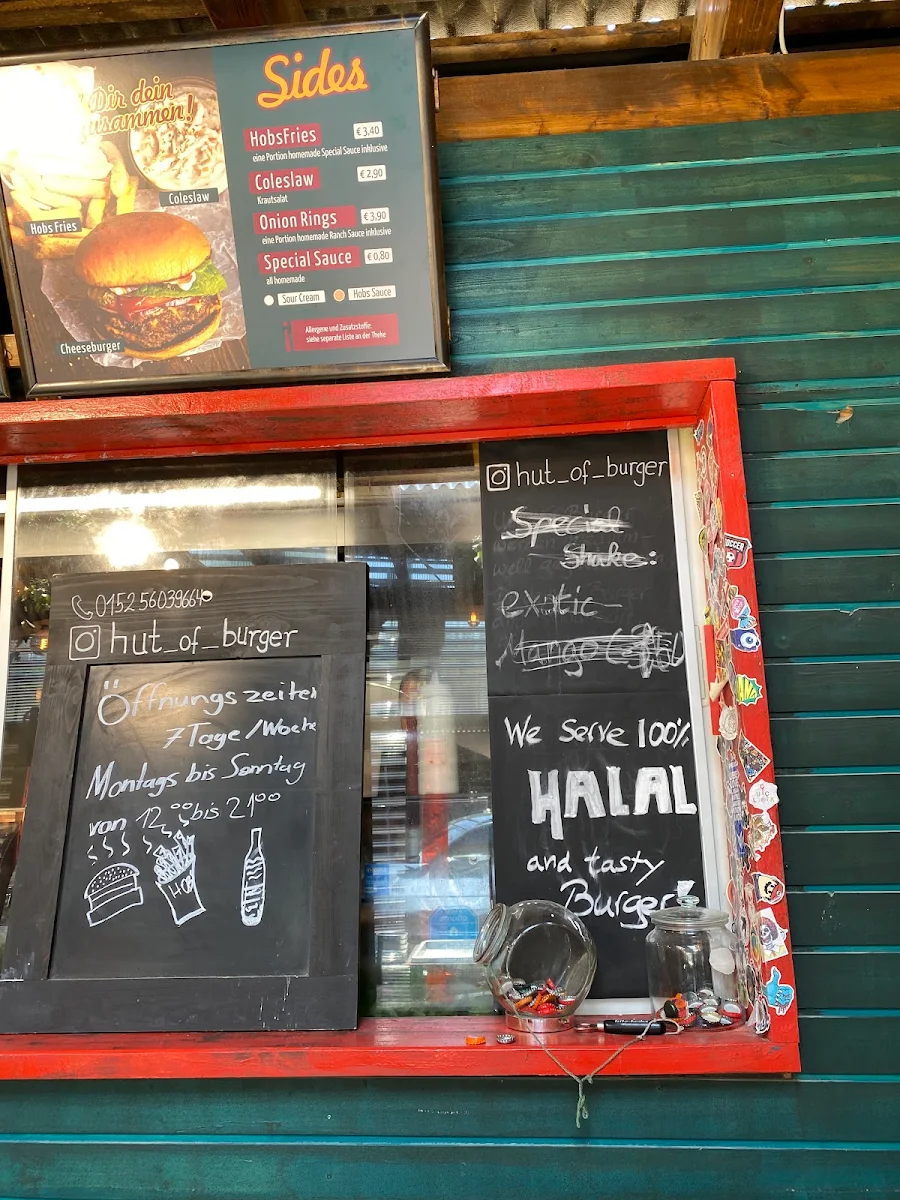 Dir dein
zusammen!
Coleslaw
Hobs Fries
Cheeseburger
Sides
HobsFries €3,40
eine Portion homemade Special Sauce inklusive
Coleslaw €2,90
Krautsalat
Onion Rings €3,90
eine Portion homemade Ranch Sauce inklusive
Special Sauce €0,80
all homemade
Sour Cream Hobs Sauce
Allergene und Zusatzstoffe:
siehe separate Liste an der Theke
0152 56039664
hut_of_burger
Öffnungszeiten
7Tage/Woche
Montags bis Sonntag
von 12⁰⁰ bis 21⁰⁰
HOB
hut_of_burger
Special
Shake:
exotic
Mango
We serve 100%
HALAL
and tasty
Burger!